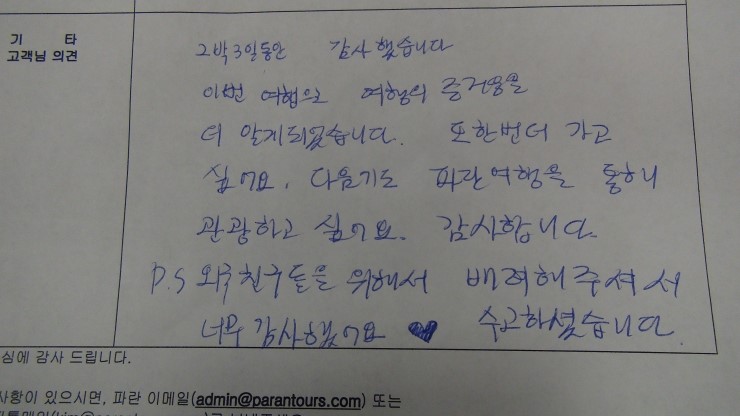 기 타
고객님 의견
2박3일동안 감사했습니다
이번 여행으로 여행의 즐거움을
더 알게되었습니다. 또한번더 가고
싶어요. 다음기도 파란여행을 통하니
관광하고 싶어요. 감사합니다.
P.S 외국친구들을 위해서 배려해주셔서
너무 감사했어요 ♥ 수고하셨습니다
심에 감사 드립니다.
사항이 있으시면, 파란 이메일(admin@parantours.com) 또는